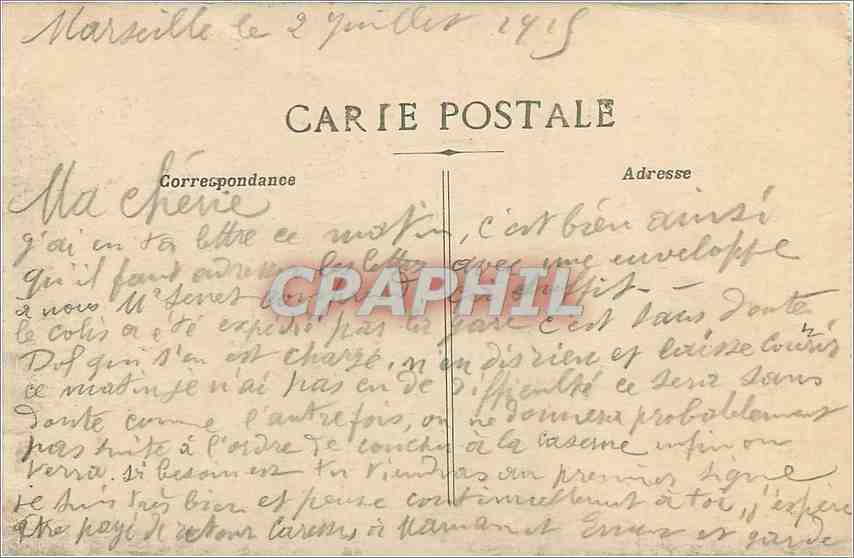 Marseille le 2 Juillet 1915
CARTE POSTALE
Correspondance
Adresse
Ma chérie
j'ai eu ta lettre ce matin, c'est bien ainsi
qu'il faut adresser les lettres avec une enveloppe
à nous Mr
CPAPHIL
le colis a été expédié par la gare c'est sans doute
Dol qui s'en est chargé, n'en dis rien et laisse courir
ce matin je n'ai pas eu de difficulté ce sera sans
doute comme l'autre fois, on ne donnera probablement
pas suite à l'ordre de coucher à la caserne enfin on
verra, si besoin est tu viendras au premier signe
je suis très bien et pense continuellement à toi, j'espère
être payé de retour Caresses à Maman et et garde